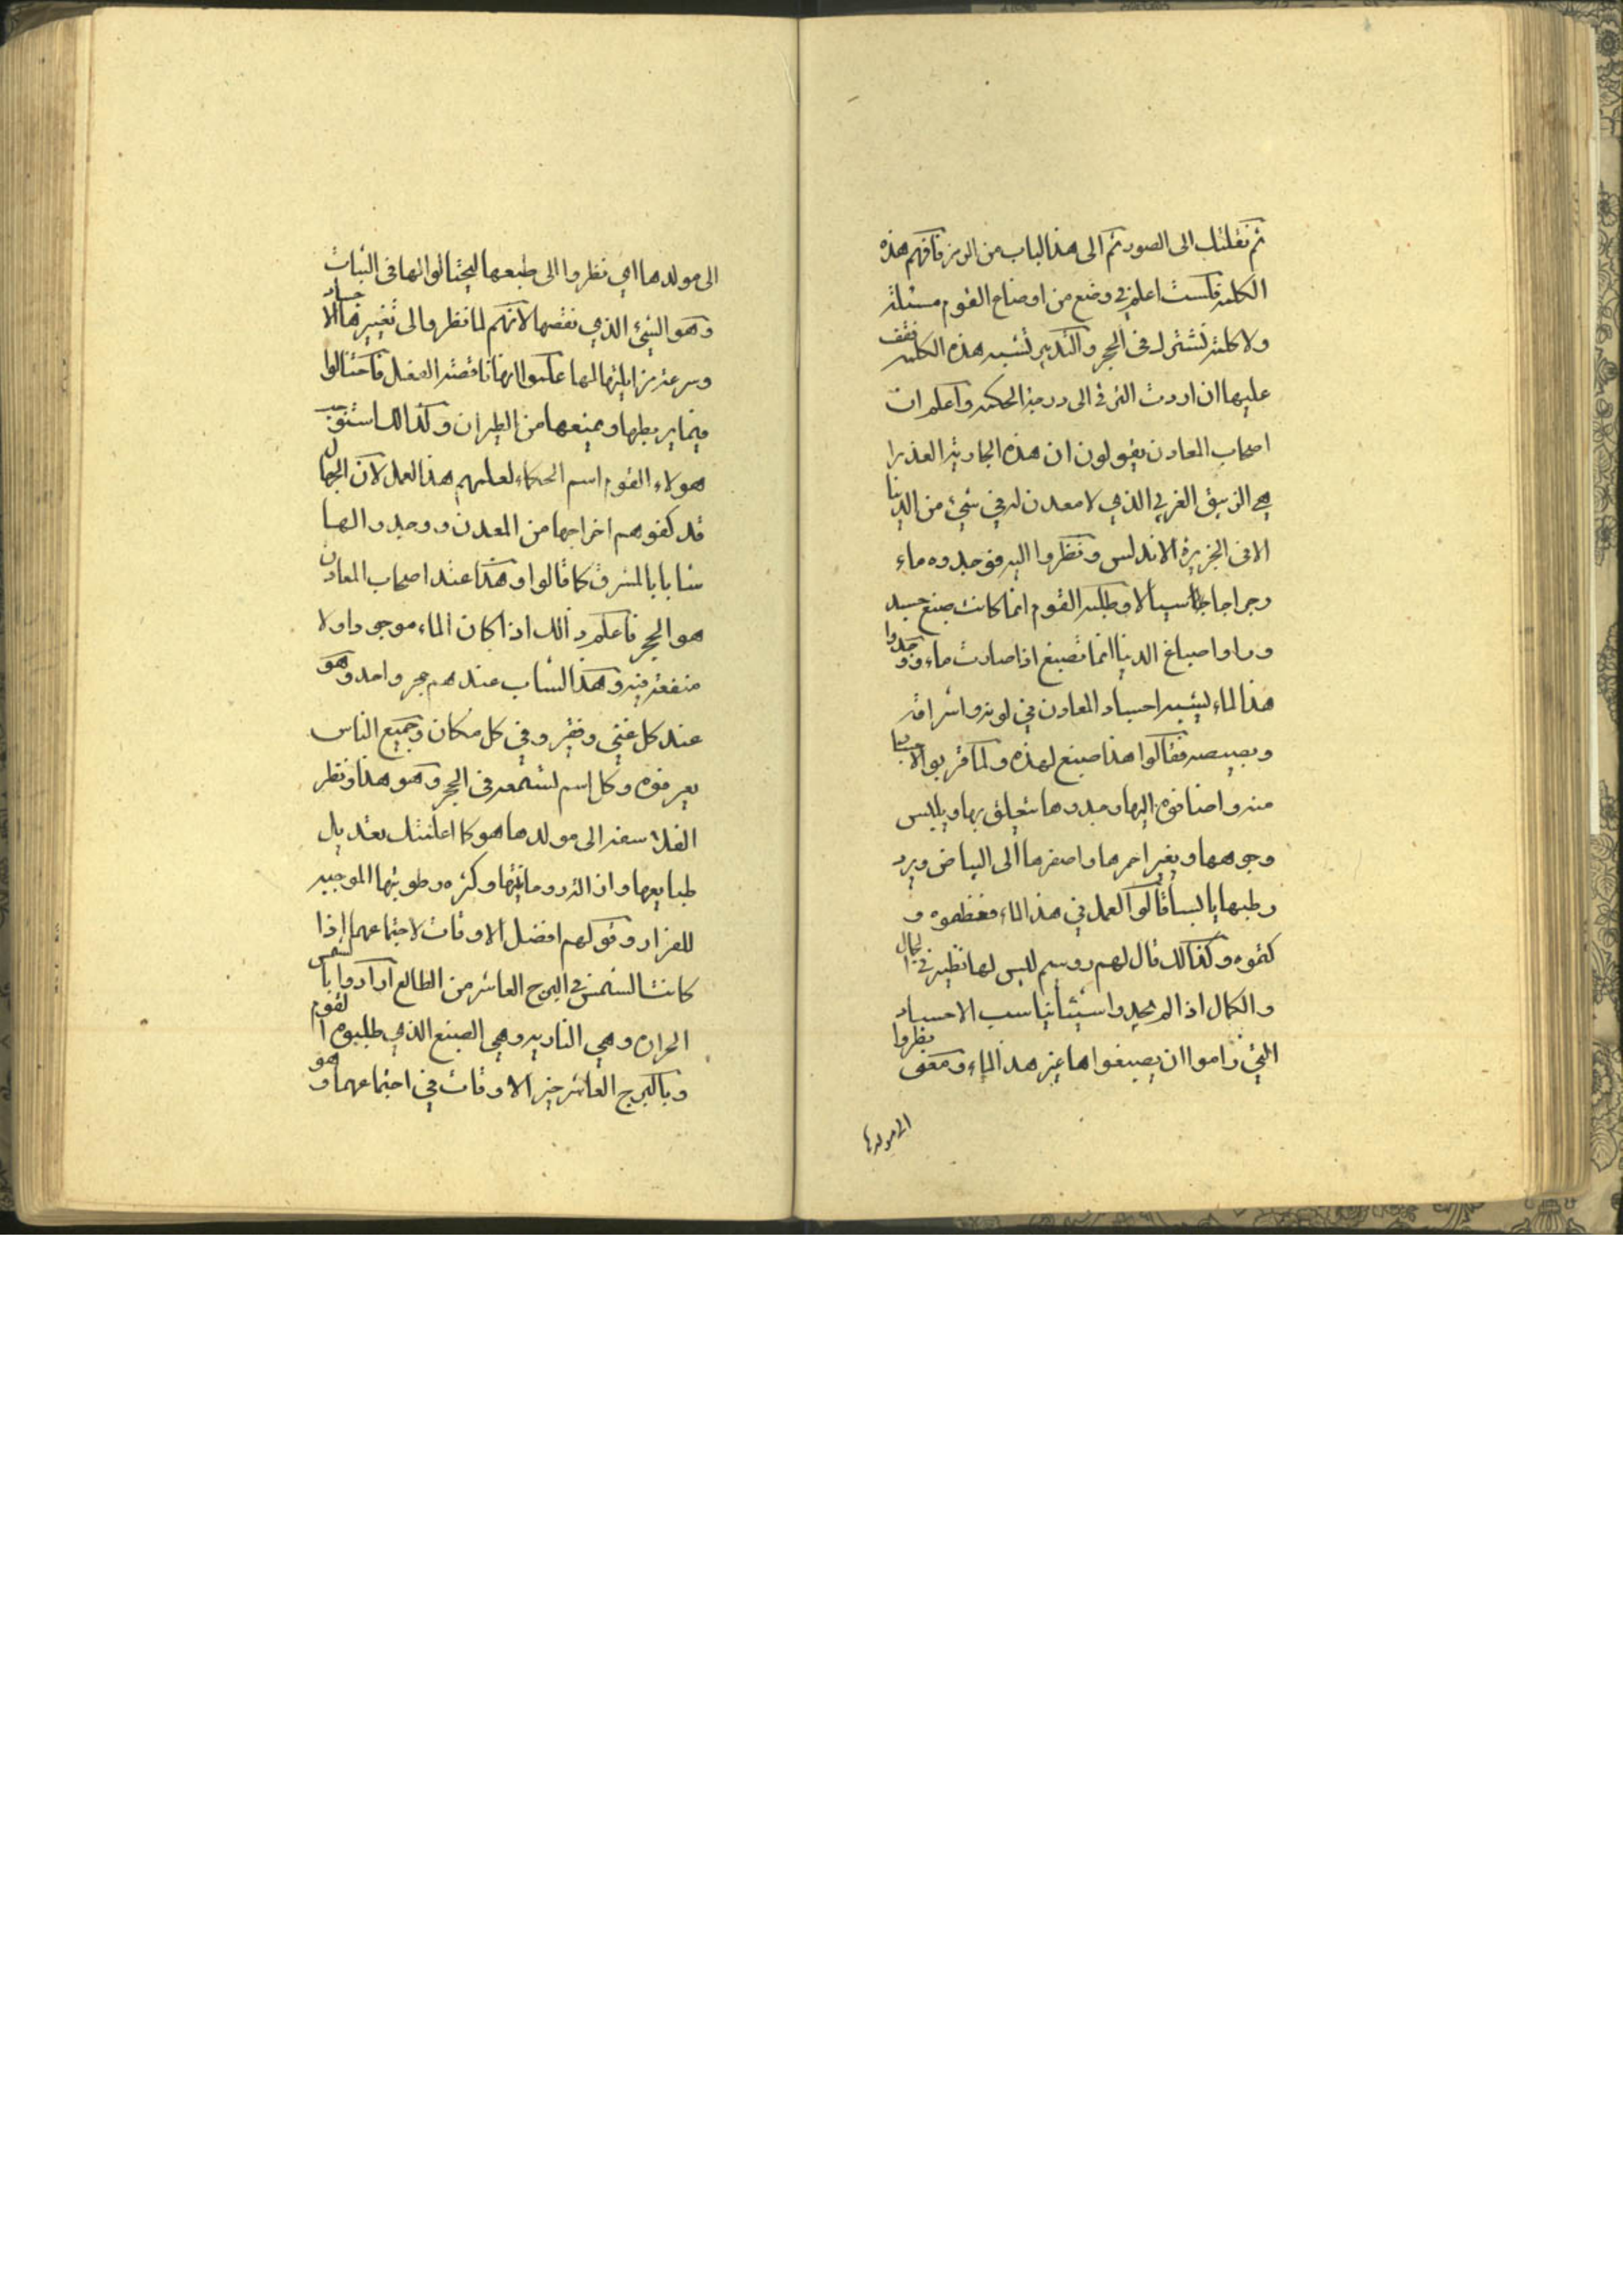 ثم نقلتك الى الصور ثم الى هذا الباب من الرمز فافهم هذه
الكلمة فلست اعلم في وضع من اوضاع القوم مسئلة
ولا كلمة تشترك في الحجر والتدبير تشبه هذه الكلمة فقف
عليها ان اردت الترقي الى درجة الحكمة واعلم ان
اصحاب المعادن يقولون ان هذه الجارية العذرا
هي الزيبق الغربي الذي لا معدن له في شيء من الدنيا
الا في الجزيرة الاندلس ونظروا اليه فوجدوه ماء
رجراجا سيالا وطلبة القوم انما كانت صبغ جسد
وراوا اصباغ الدنيا انما تصبغ اذا صارت ماء ووجدوا
هذا الماء يشبه اجساد المعادن في لونه واشراقه
وبصيصه فقالوا هذا صبغ لهذه ولما قربوا الاجساد
منه واضافوه اليها وجدوها يتعلق بها ويلبس
وجوهها ويغير احمرها واصفرها الى البياض ويرد
رطبها يابسا قالوا العمل في هذا الماء فعظموه و
كتموه وكذالك قال لهم روسم ليس لها نظير في الجمال
والكمال اذا لم يجدوا شيئا يناسب الاجساد
التي راموا ان يصبغوها غير هذا الماء ومعنى نظروا
الى مولدها
الى مولدها اي نظروا الى طبعها ليحتالوا لها في الثبات
وهو الشيء الذي نقصها لانهم لما نظروا الى تغييرها الاجساد
وسرعة مزايلتها لها علموا انها ناقصة الفعل فاحتالوا
فيما يربطها ويمنعها من الطيران وكذالك استوجب
هولاء القوم اسم الحكماء لعلمهم هذا العمل لان الجهال
قد كفوهم اخراجها من المعدن ووجدوا لها
شابا بالمشرق كما قالوا وهذا عند اصحاب المعادن
هو الحجر فاعلم ذالك اذا كان الماء موجودا ولا
منفعة فيه وهذا الشاب عندهم حجر واحد وهو
عند كل غني وفقير وفي كل مكان وجميع الناس
يعرفوه وكل اسم تسمعه في الحجر وهو هذا ونظر
الفلاسفة الى مولدها هو كما اعلمتك تعديل
طبايعها وان الترروحانيتها وكثره رطوبتها الموجبه
للفرار وقولهم افضل الاوقات لاجتماعهما اذا
كانت الشمس في البرج العاشر من الطالع ارادوا بالشمس
الحراره وهي الناريه وهي الصبغ الذي طلبوه القوم
وبالبرج العاشر خير الاوقات في اجتماعهما وهو